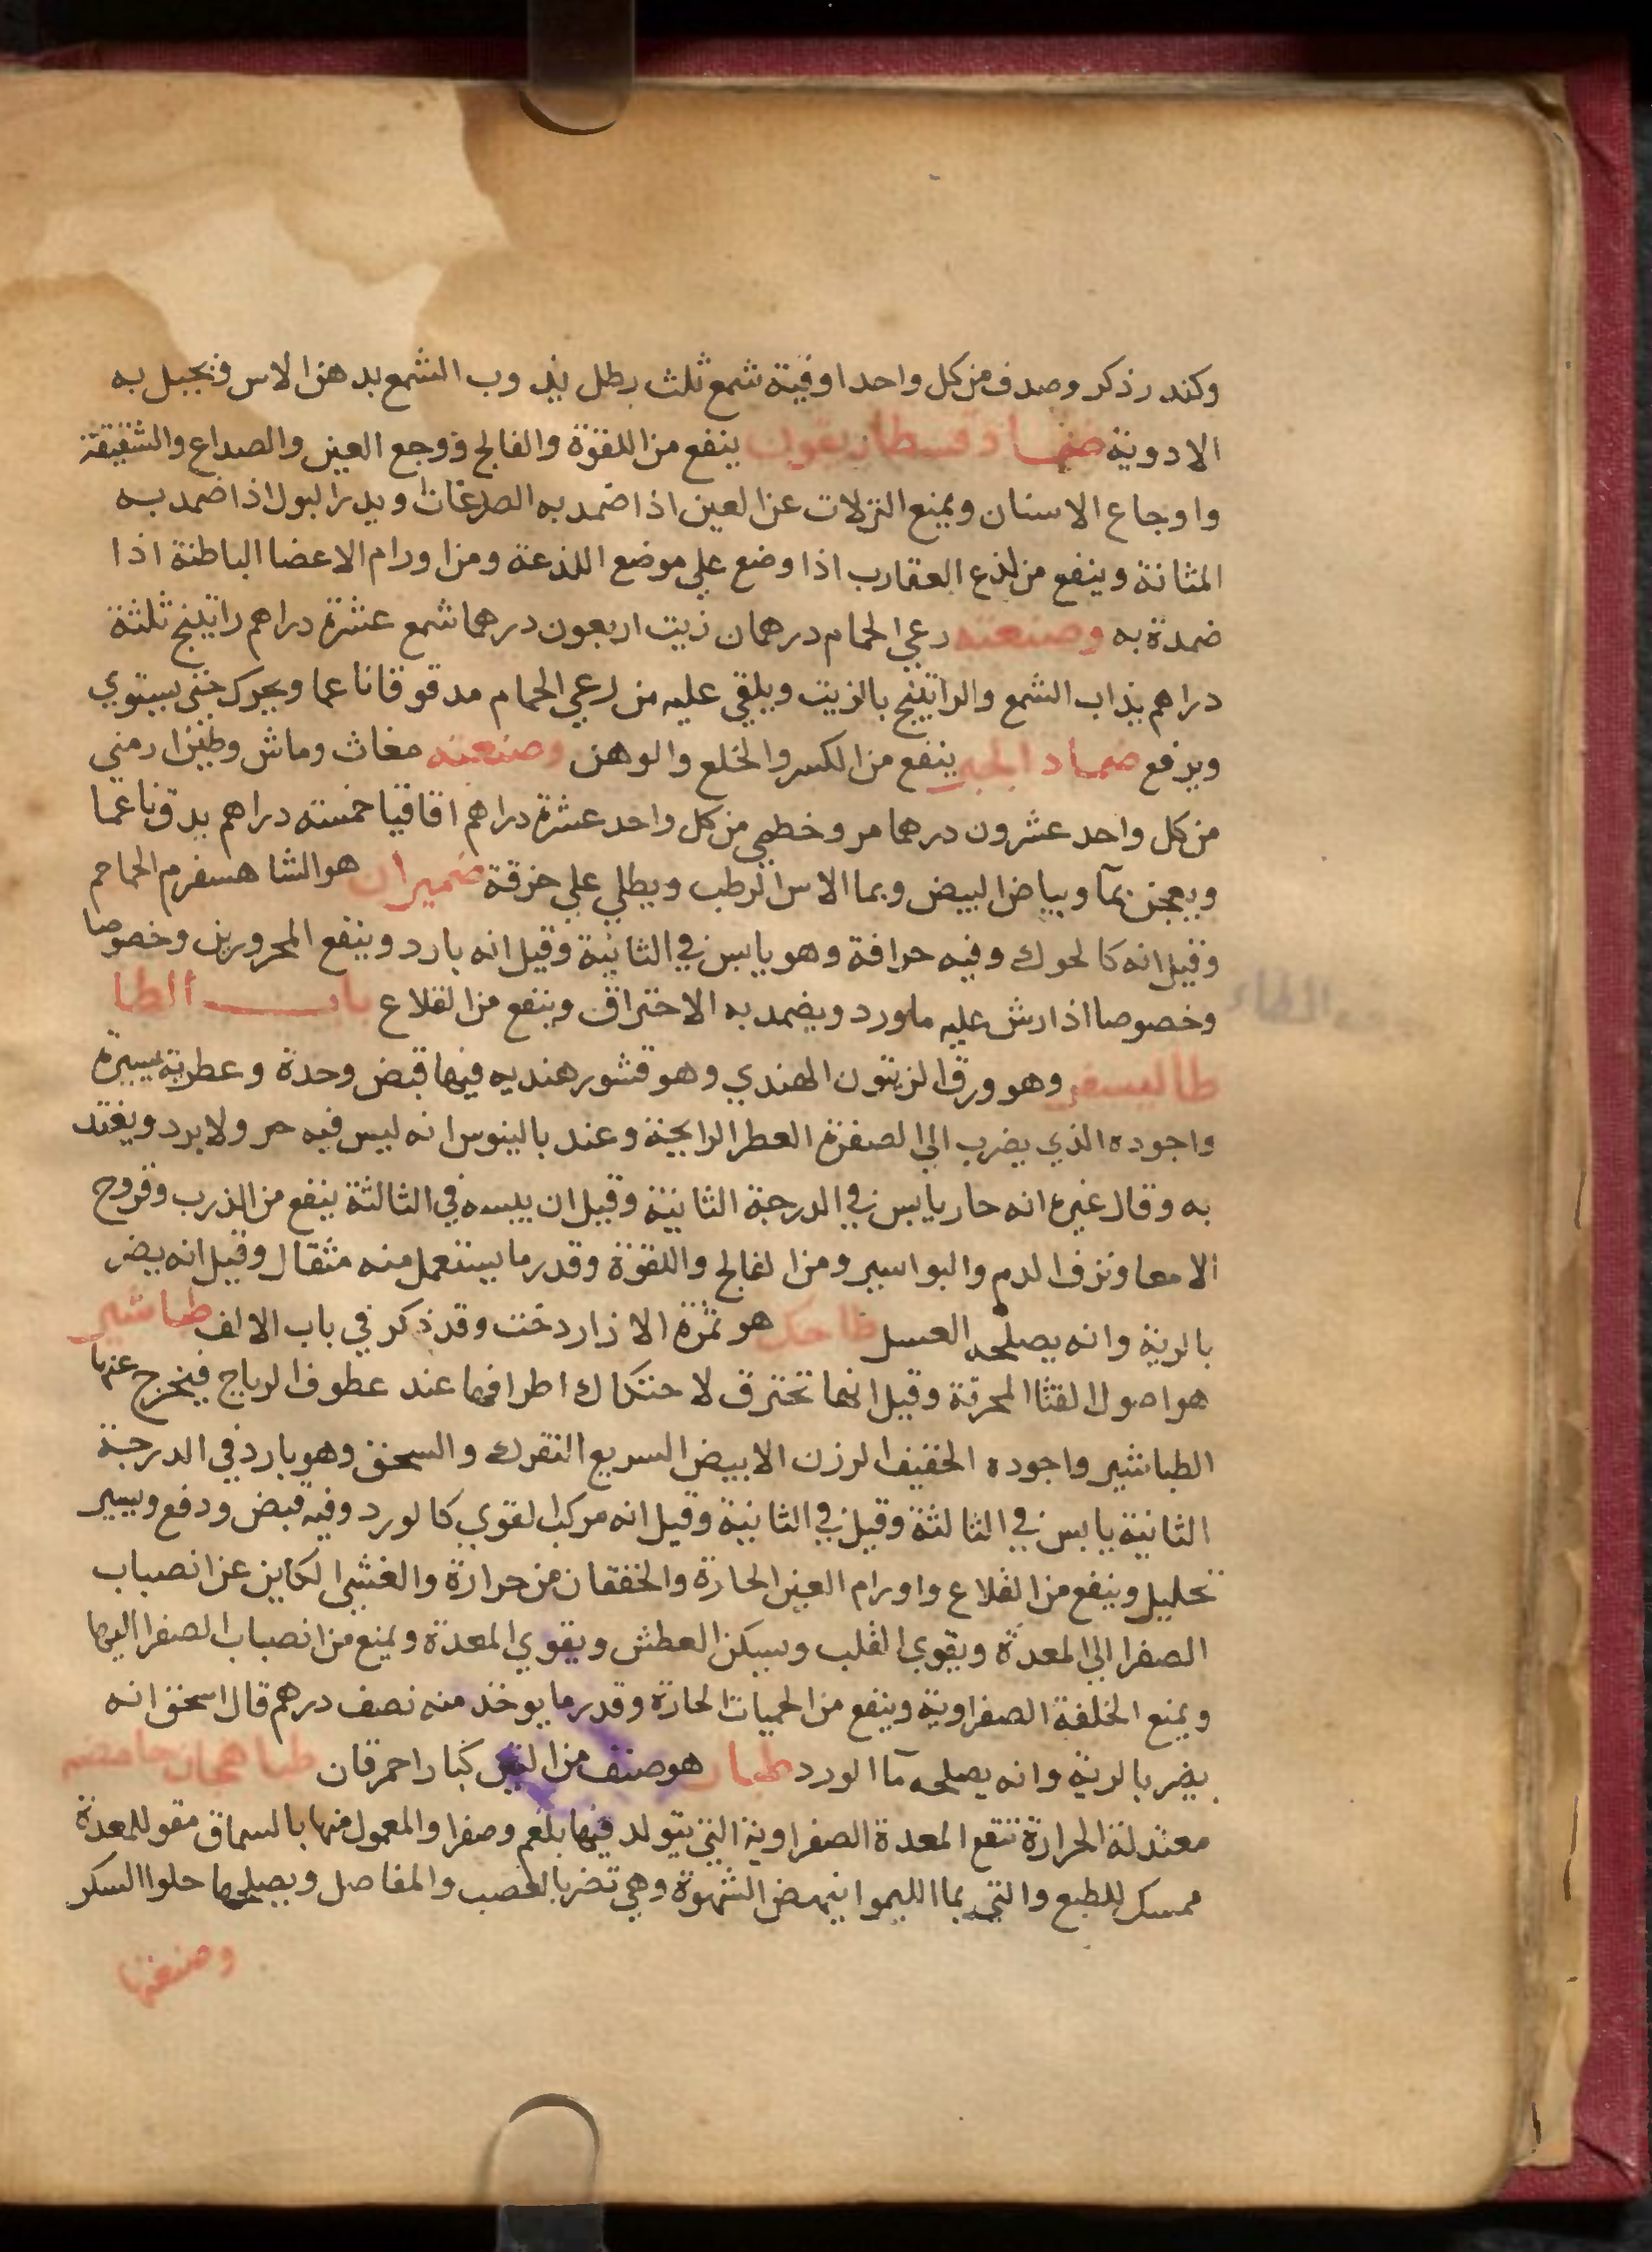 وكندر ذكر وصدف من كل واحد اوقية شمع ثلث رطل يذوب الشمع بدهن الاس وبجبل به
الادوية ضماد قسطاريغون ينفع من اللقوة والفالج ووجع العين والصداع والشقيقة
واوجاع الاسنان ويمنع النزلات عن العين اذا ضمد به الصدغان ويدر البول اذا ضمد به
المثانة وينفع من لذع العقارب اذا وضع علي موضع اللذعة ومن اورام الاعضا الباطنة اذا
ضمدة به وصنعته رعي الحمام درهمان زيت اربعون درهما شمع عشرة دراهم راتينج ثلثة
دراهم يذاب الشمع والراتينج بالزيت ويلقي عليه من رعي الحمام مدقوقا ناعما ويحرك حتى يستوي
ويرفع ضماد الجبر ينفع من الكسر والخلع والوهن وصنعته مغاث وماش وطين ارمني
من كل واحد عشرون درهما مر وخطمي من كل واحد عشرة دراهم اقاقيا خمسته دراهم يدق ناعما
ويعجن بمآ وبياض البيض وبما الاس الرطب ويطلي علي خرقة ضميران هو الشاهسفرم الحماحم
وقيل انه كالحوك وفيه حرافة وهو يابس في الثانية وقيل انه بارد وينفع المحرورين وخصوصا
وخصوصا اذا رش عليه ماورد ويضمد به الاحتراق وينفع من القلاع باب الطا
الطاء
طاليسفر وهو ورق الزيتون الهندي وهو قشور هنديه فيها قبض وحدة وعطرية يسيرة
واجوده الذي يضرب الي الصفرة العطر الرايحة وعند بالينوس انه ليس فيه حر ولا برد ويغتد
به وقال غيره انه حار يابس في الدرجة الثانية وقيل ان يبسه في الثالثة ينفع من الذرب وقروح
الامعا ونزف الدم والبواسير ومن الفالج واللقوة وقدر ما يستعمل منه مثقال وقيل انه يضر
بالرية وانه يصلحه العسل طاحك هو ثمرة الازاردخت وقد ذكر في باب الالف طباشير
هو اصول القنا المحرقة وقيل انها تحترق لاحتكاك اطرافها عند عطوف الرياح فيخرج عنها
الطباشير واجوده الخفيف الرزن الابيض السريع التفرك والسحق وهو بارد في الدرجة
الثانية يابس في الثالثة وقيل في الثانية وقيل انه مركب القوي كالورد وفيه قبض ودفع ويسير
تحليل وينفع من القلاع واورام العين الحارة والخفقان من حرارة والغشي الكاين عن انصباب
الصفرا الي المعدة ويقوي القلب ويسكن العطش ويقوي المعدة ويمنع من انصباب الصفرا اليها
ويمنع الخلفة الصفراوية وينفع من الحميات الحارة وقدر ما يوخذ منه نصف درهم قال اسحق انه
يضر بالرية وانه يصلحه مآ الورد طبار هو صنف من التين كبار احمر قان طباهجات حامضه
معتدلة الحرارة تنقع المعدة الصفراوية التي يتولد فيها بلغم وصفرا والمعمول منها بالسماق مقو للمعدة
ممسكه للطبع والتي بما الليموا ينهض الشهوة وهي تضر بالعصب والمفاصل ويصلحها حلوا السكر
وصنعتها